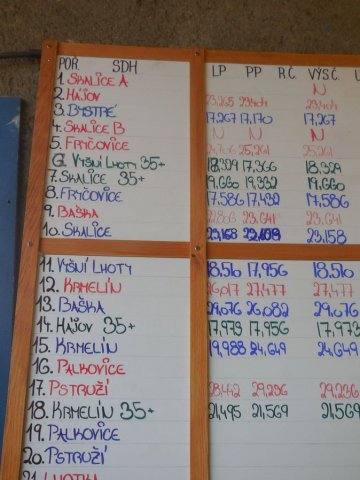 POŘ. SDH LP PP R.Č. VÝS.Č.
1. SKALICE A N
2. HÁJOV 23,265 23,404 23,404
3. BYSTRÉ 17,267 17,170 17,267
4. SKALICE B N N N
5. FRYČOVICE 24,706 25,261 25,261
6. VYŠNÍ LHOTY 35+ 18,329 17,366 18,329
7. SKALICE 35+ 19,660 19,332 19,660
8. FRYČOVICE 17,586 17,432 17,586
9. BAŠKA 22,866 23,641 23,641
10. SKALICE 23,158 23,158
11. VYŠNÍ LHOTY 18,516 17,956 18,516
12. KRMELÍN 26,017 27,477 27,477
13. BAŠKA 29,076 26,082 29,076
14. HÁJOV 35+ 17,973 17,956 17,973
15. KRMELÍN 19,988 24,649 24,649
16. PALKOVICE
17. PSTRUŽÍ 28,442 29,236 29,236
18. KRMELÍN 35+ 21,495 21,569 21,569
19. PALKOVICE
20. PSTRUŽÍ
21. LHOTKA